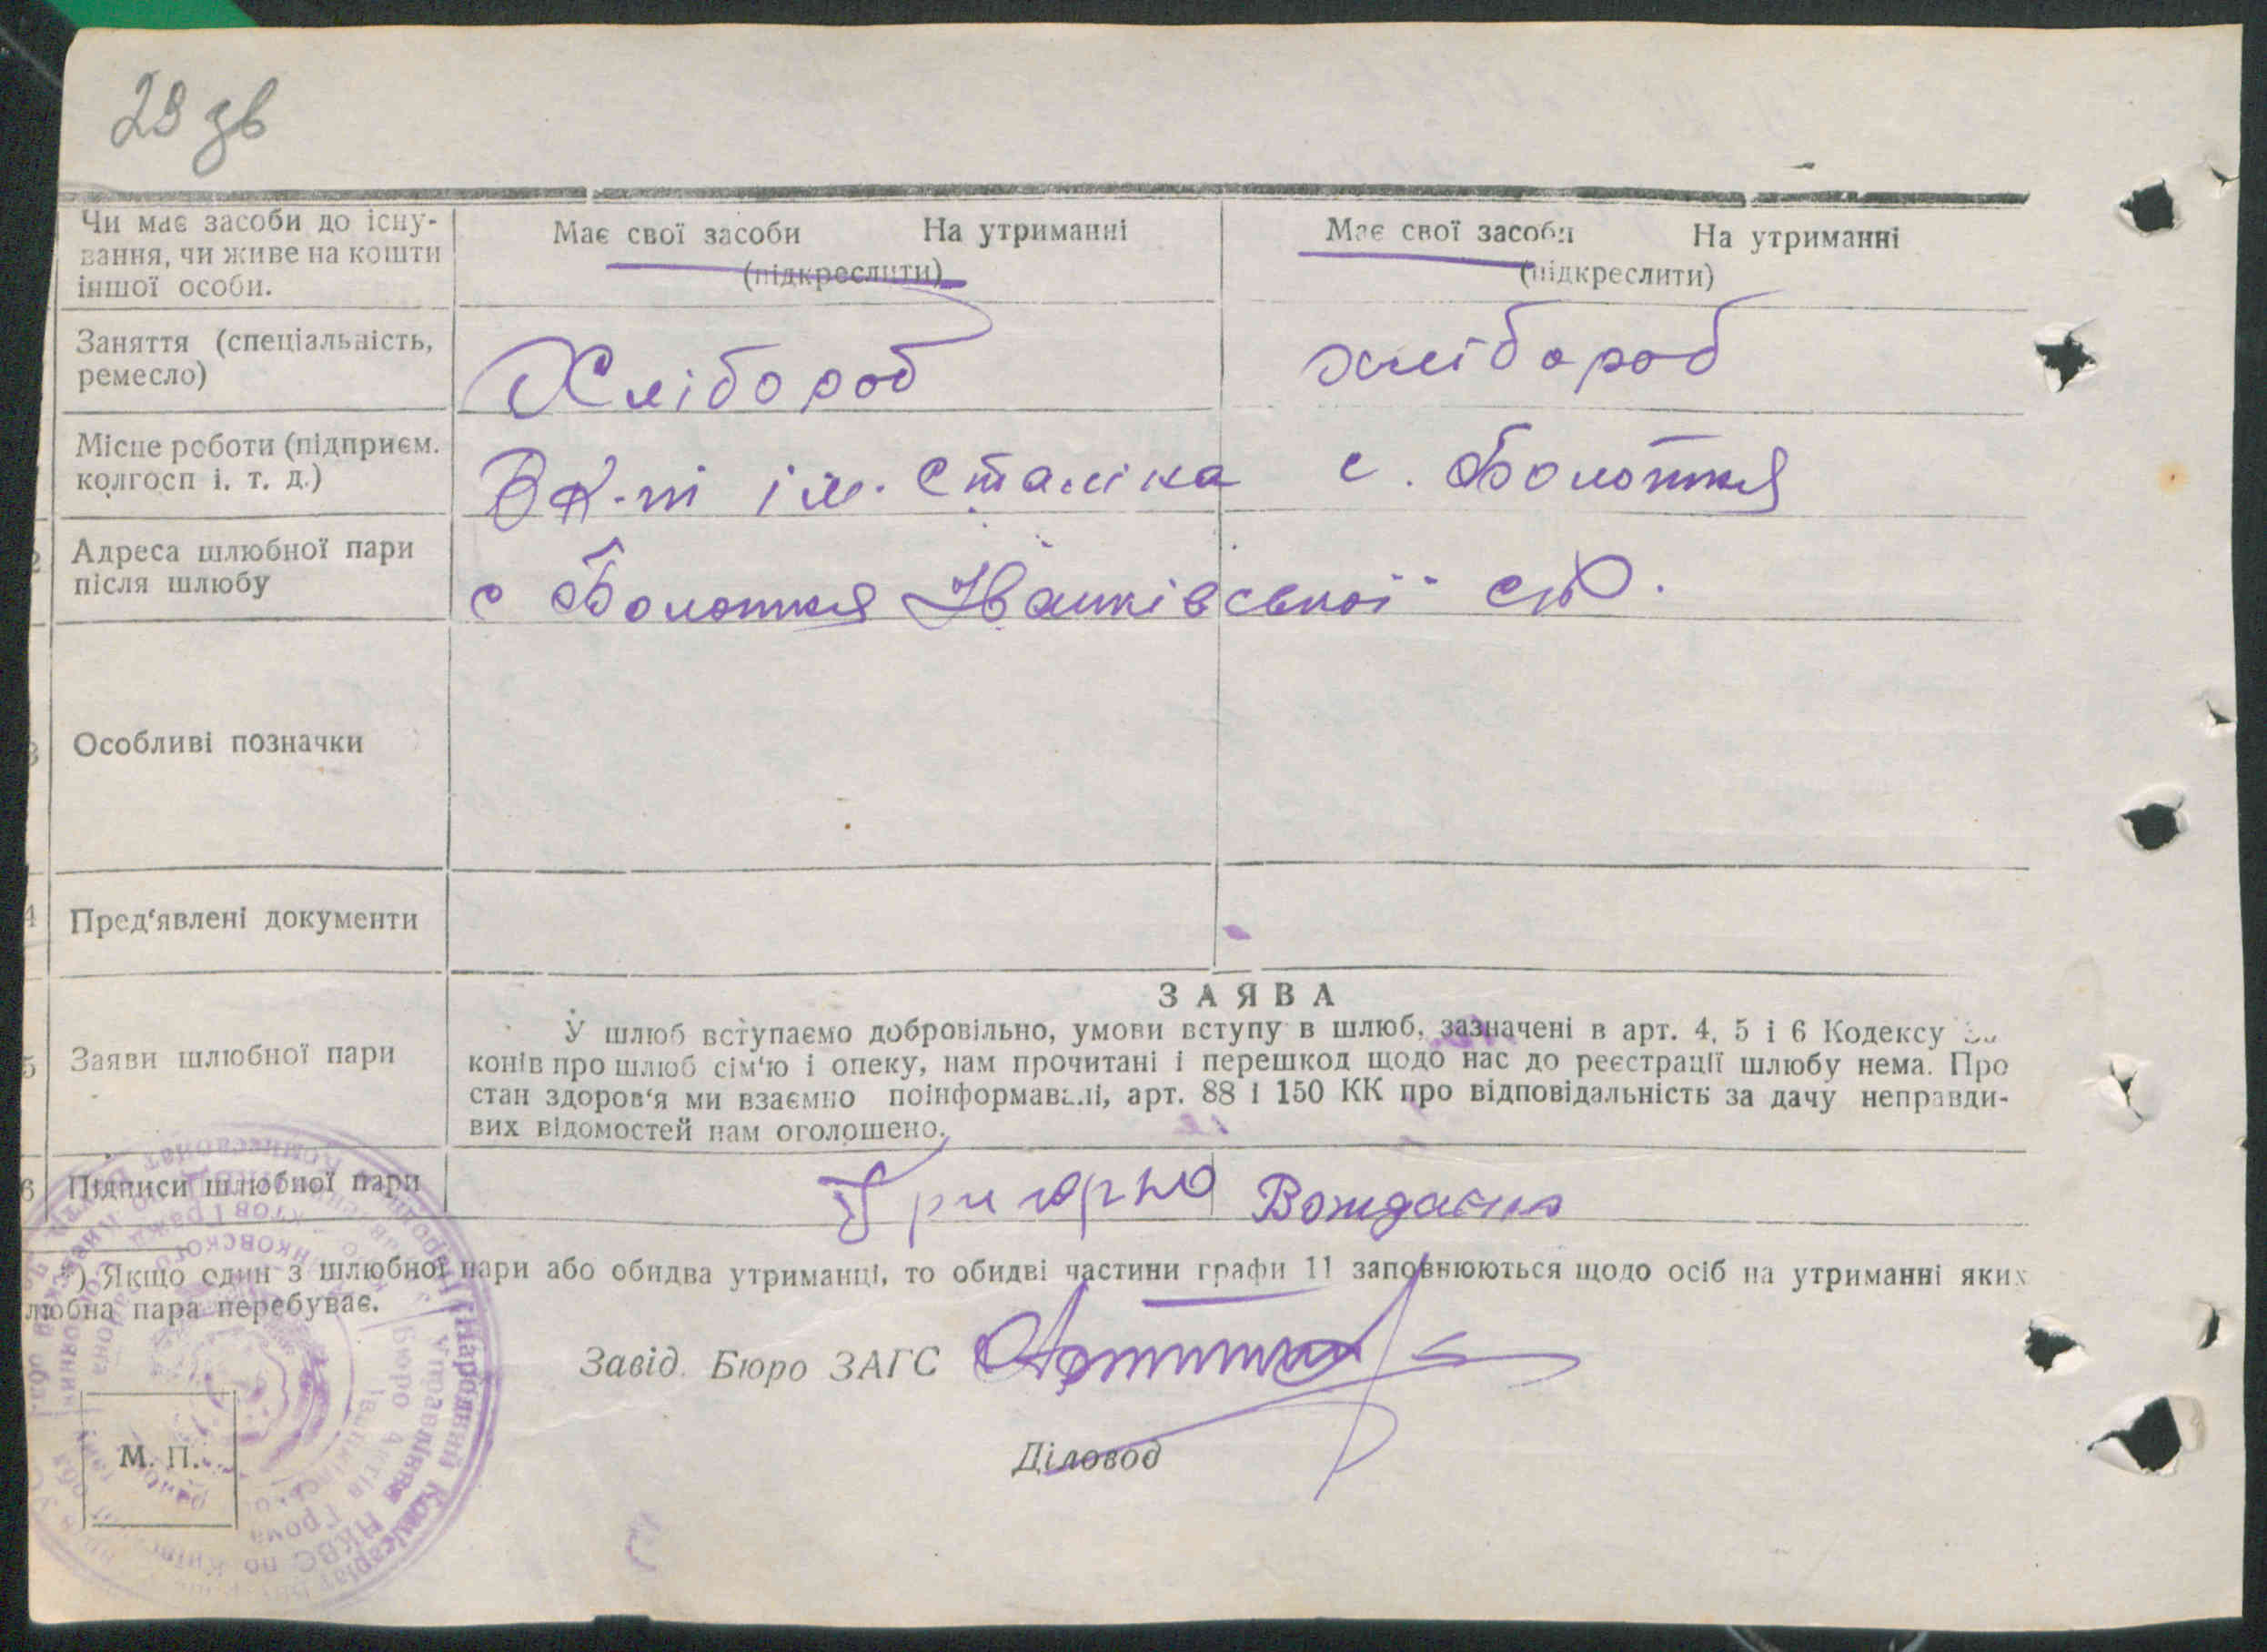 28 зв
Чи має засоби до існу-
вання, чи живе на кошти
іншої особи.
Має свої засоби На утриманні
(підкреслити)
Має свої засоби На утриманні
(підкреслити)
Заняття (спеціальність,
ремесло)
Хлібороб хлібороб
Місце роботи (підприєм.
колгосп і. т. д.)
ім. Сталіна с. Болотня
Адреса шлюбної пари
після шлюбу
с Болотня Іванківської
Особливі позначки
4 Пред'явлені документи
5 Заяви шлюбної пари
ЗАЯВА
У шлюб вступаємо добровільно, умови вступу в шлюб, зазначені в арт. 4, 5 і 6 Кодексу За
конів про шлюб сім'ю і опеку, нам прочитані і перешкод щодо нас до реєстрації шлюбу нема. Про
стан здоров'я ми взаємно поінформавалі, арт. 88 і 150 КК про відповідальність за дачу неправди-
вих відомостей нам оголошено.
6 Підписи шлюбної пари
*) Якщо один з шлюбної пари або обидва утриманці, то обидві частини графи 11 заповнюються щодо осіб на утриманні яких
любна пара перебуває.
Завід. Бюро ЗАГС
Діловод
М. П.
Народний Комісаріат
Управління НКВС по Київ
Бюро Актів Грома